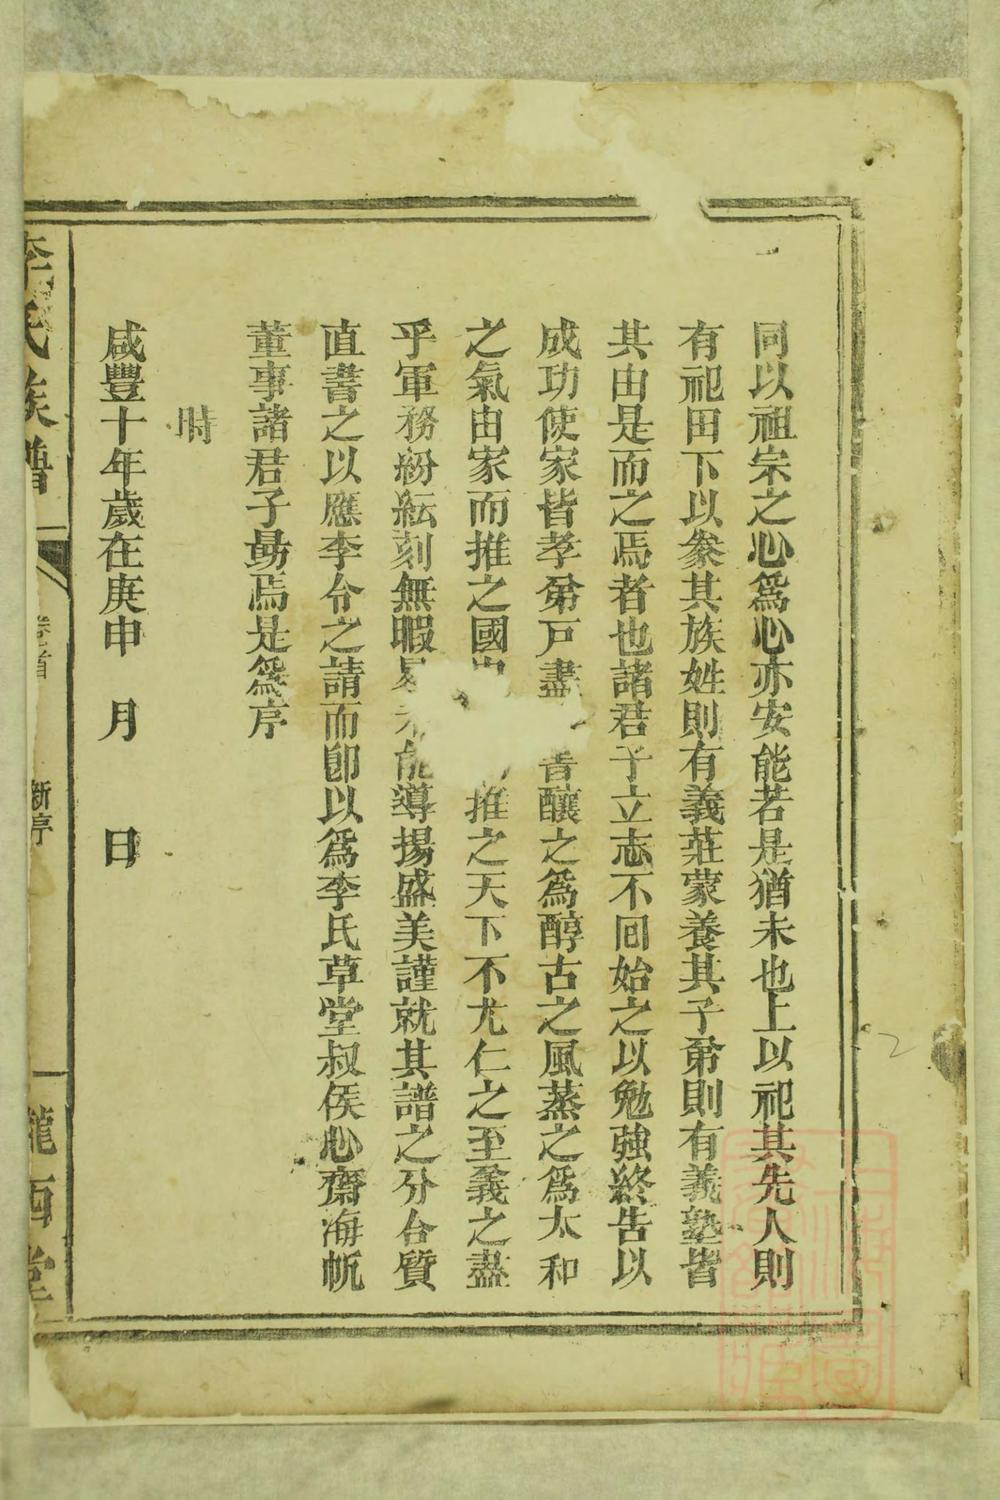 同以祖宗之心爲心亦安能若是猶未也上以祀其先人則
有祀田下以叅其族姓則有義莊蒙養其子弟則有義塾皆
其由是而之焉者也諸君子立志不回始之以勉強終告以
成功使家皆孝弟戶盡釀之爲醇古之風蒸之爲太和
之氣由家而推之國推之天下不尤仁之至義之盡
乎軍務紛紜刻無暇能導揚盛美謹就其譜之分合質
直書之以應李令之請而卽以爲李氏草堂叔侯心齋海帆
董事諸君子勗焉是爲序
時
咸豐十年歲在庚申 月 日
李氏族譜
卷首
新序
隴西堂